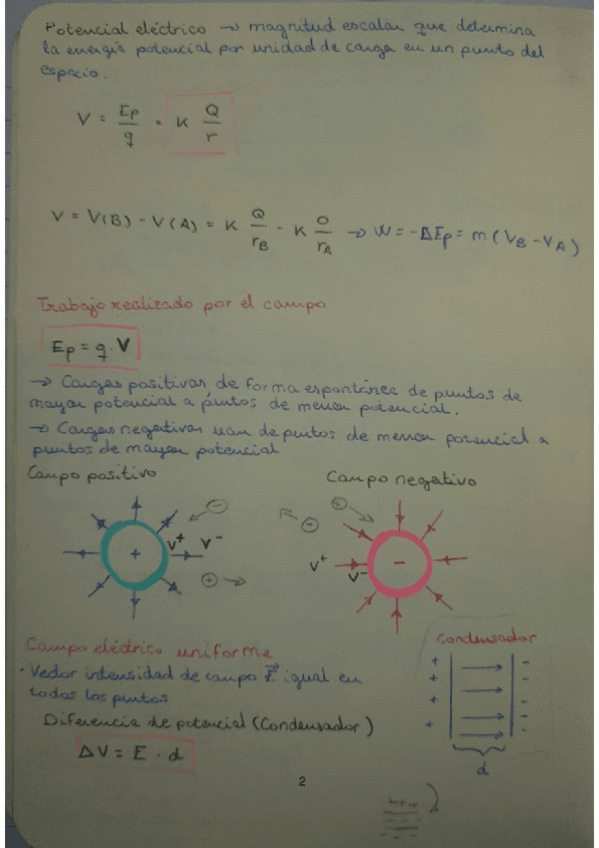 Potencial eléctrico → magnitud escalar que determina
la energía potencial por unidad de carga en un punto del
espacio.
V = Ep/q = K Q/r
V = V(B) - V(A) = K Q/rB - K Q/rA → W = -ΔEp = m(VB - VA)
Trabajo realizado por el campo
Ep = q · V
→ Cargas positivas de forma espontánea de puntos de
mayor potencial a puntos de menor potencial.
→ Cargas negativas van de puntos de menor potencial a
puntos de mayor potencial
Campo positivo
Campo negativo
-
+
V+ V-
+
+
-
V+
V-
-
Campo eléctrico uniforme
Condensador
· Vector intensidad de campo E⃗ igual en
todos los puntos
+ -
+ -
+ -
+ -
d
Diferencia de potencial (Condensador)
ΔV = E · d
2